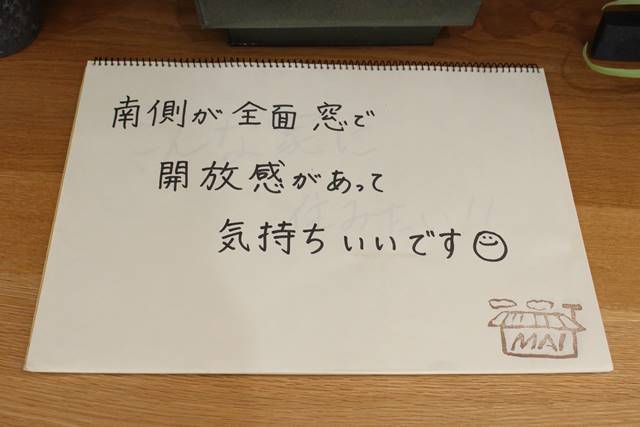 南側が全面窓で
開放感があって
気持ちいいです
MAI